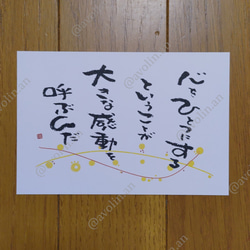 心をひとつにする
ということが
大きな感動を
呼ぶんだ
@avolin.an